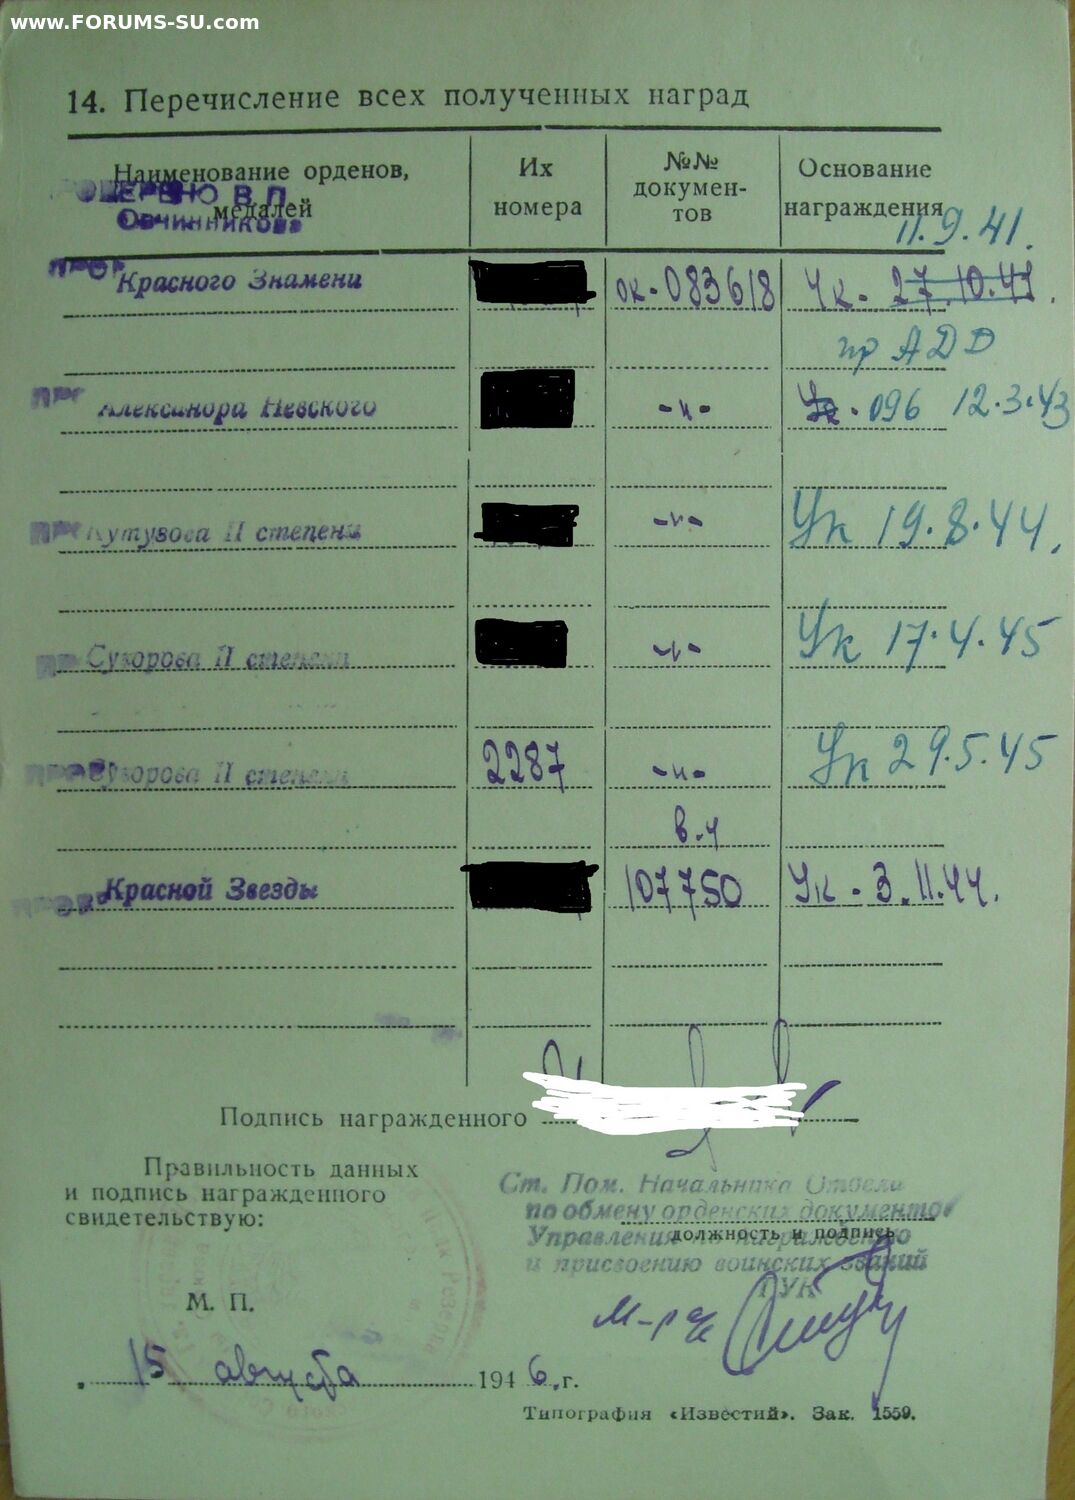 www.FORUMS-SU.com
14. Перечисление всех полученных наград
Наименование орденов, медалей
Их номера
№№ докумен-тов
Основание награждения
В. П.
Овчинников
11.9.41.
Красного Знамени ок-083618 Ук- 27.10.41.
пр АДД
Александра Невского -"- Ук. 096 12.3.43
Кутузова II степени -"- Ук 19.8.44.
Суворова II степени -"- Ук 17.4.45
Суворова II степени 2287 -"- Ук 29.5.45
в.ч
Красной Звезды 107750 Ук - 3.11.44.
Подпись награжденного
Правильность данных
и подпись награжденного
свидетельствую:
Ст. Пом. Начальника Отдела
по обмену орденских документов
Управления награждению
должность и подпись
и присвоению воинских званий
ГУК
М. П.
м-р а/с
15 августа 1946.г.
Типография «Известий». Зак. 1559.